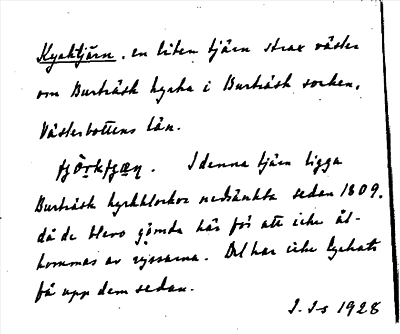 Kyrktjärn. en liten tjärn strax väster
om Burträsk kyrka i Burträsk socken,
Västerbottens län.
I denna tjärn ligga
Burträsk kyrkklockor nedsänkta sedan 1809.
då de blevo gömda här för att icke åt-
kommas av ryssarna. Det har icke lyckats
få upp dem sedan.
J. J-s 1928